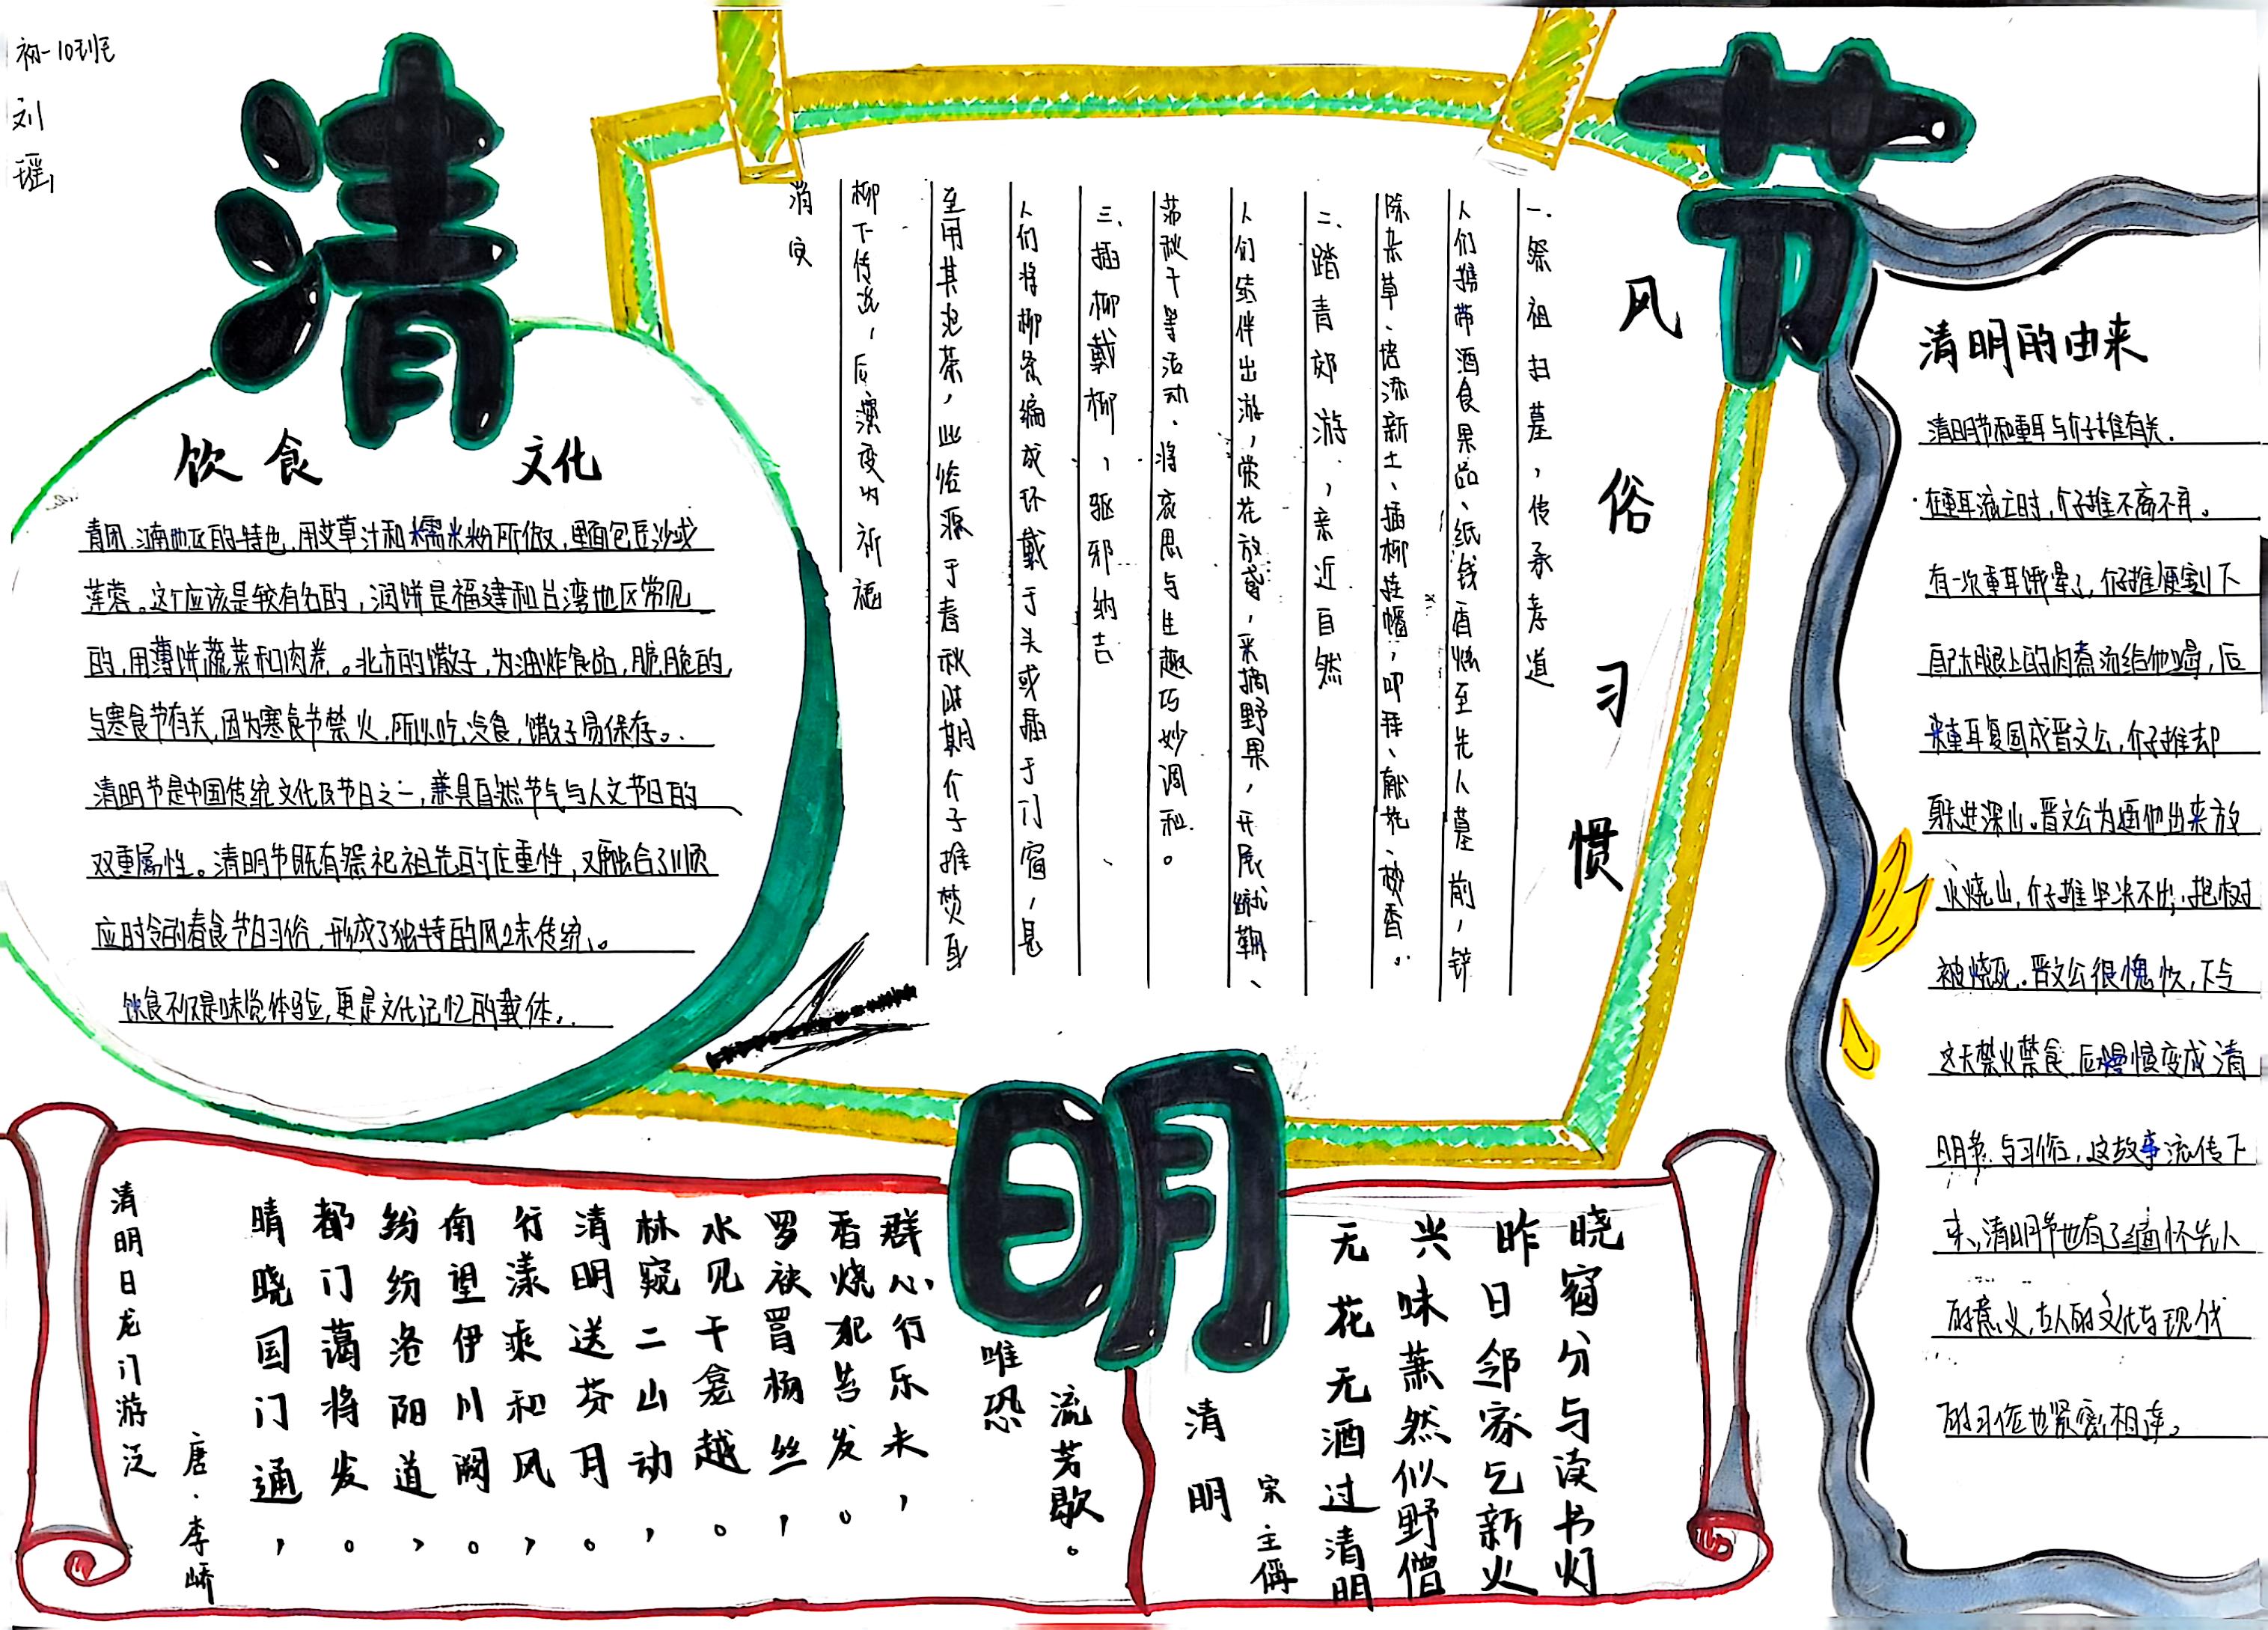 初一10班
刘
瑶
清
明
节
饮食 文化
青团.江南地区的特色,用艾草汁和糯米粉所做,里面包豆沙或
莲蓉。这个应该是较有名的,润饼是福建和台湾地区常见
的,用薄饼蔬菜和肉卷。北方的馓子,为油炸食品,脆脆的,
与寒食节有关,因为寒食节禁火,所以吃冷食,馓子易保存。
清明节是中国传统文化及节日之一,兼具自然节气与人文节日的
双重属性。清明节既有祭祀祖先的庄重性,又融合了顺
应时令的春食节日习俗,形成了独特的风味传统。
饮食不仅是味觉体验,更是文化记忆的载体。
风俗习惯
一.祭祖扫墓,传承孝道
人们携带酒食果品、纸钱香烛至先人墓前,锌
除杂草、培添新土、插柳挂幡,叩拜、献花、焚香。
二、踏青郊游,亲近自然
人们结伴出游,赏花放鸢,采摘野果,开展蹴鞠、
荡秋千等活动.将哀思与生趣巧妙调和.。
三、插柳戴柳,驱邪纳吉
人们将柳条编成环戴于头或插于门窗,是
至用其泡茶,此俗源于春秋时期介子推焚身
柳下传说,后演变为祈福
消灾
清明的由来
清明节和重耳与介子推有关.
在重耳流亡时,介子推不离不弃。
有一次重耳饿晕了,介子推便割下
自己大腿上的肉煮汤给他喝,后
来重耳复国成晋文公,介子推却
躲进深山。晋文公为逼他出来放
火烧山,介子推坚决不出,抱树
被烧死.晋文公很愧疚,下令
这天禁火禁食.后慢慢变成清
明节与习俗,这故事流传下
来,清明节也有了缅怀先人
的意义,古人的文化与现代
的习俗也紧密相连。
清明日龙门游泛
唐·李峤
晴晓国门通,
都门蔼将发。
纷纷洛阳道,
南望伊川阙。
行漾乘和风,
清明送芬月。
林窥二山动,
水见千龛越。
罗袂罥杨丝,
香烧犯苔发。
群心行乐未,
唯恐
流芳歇。
清明
宋 王偁
无花无酒过清明
兴味萧然似野僧
昨日邻家乞新火
晓窗分与读书灯